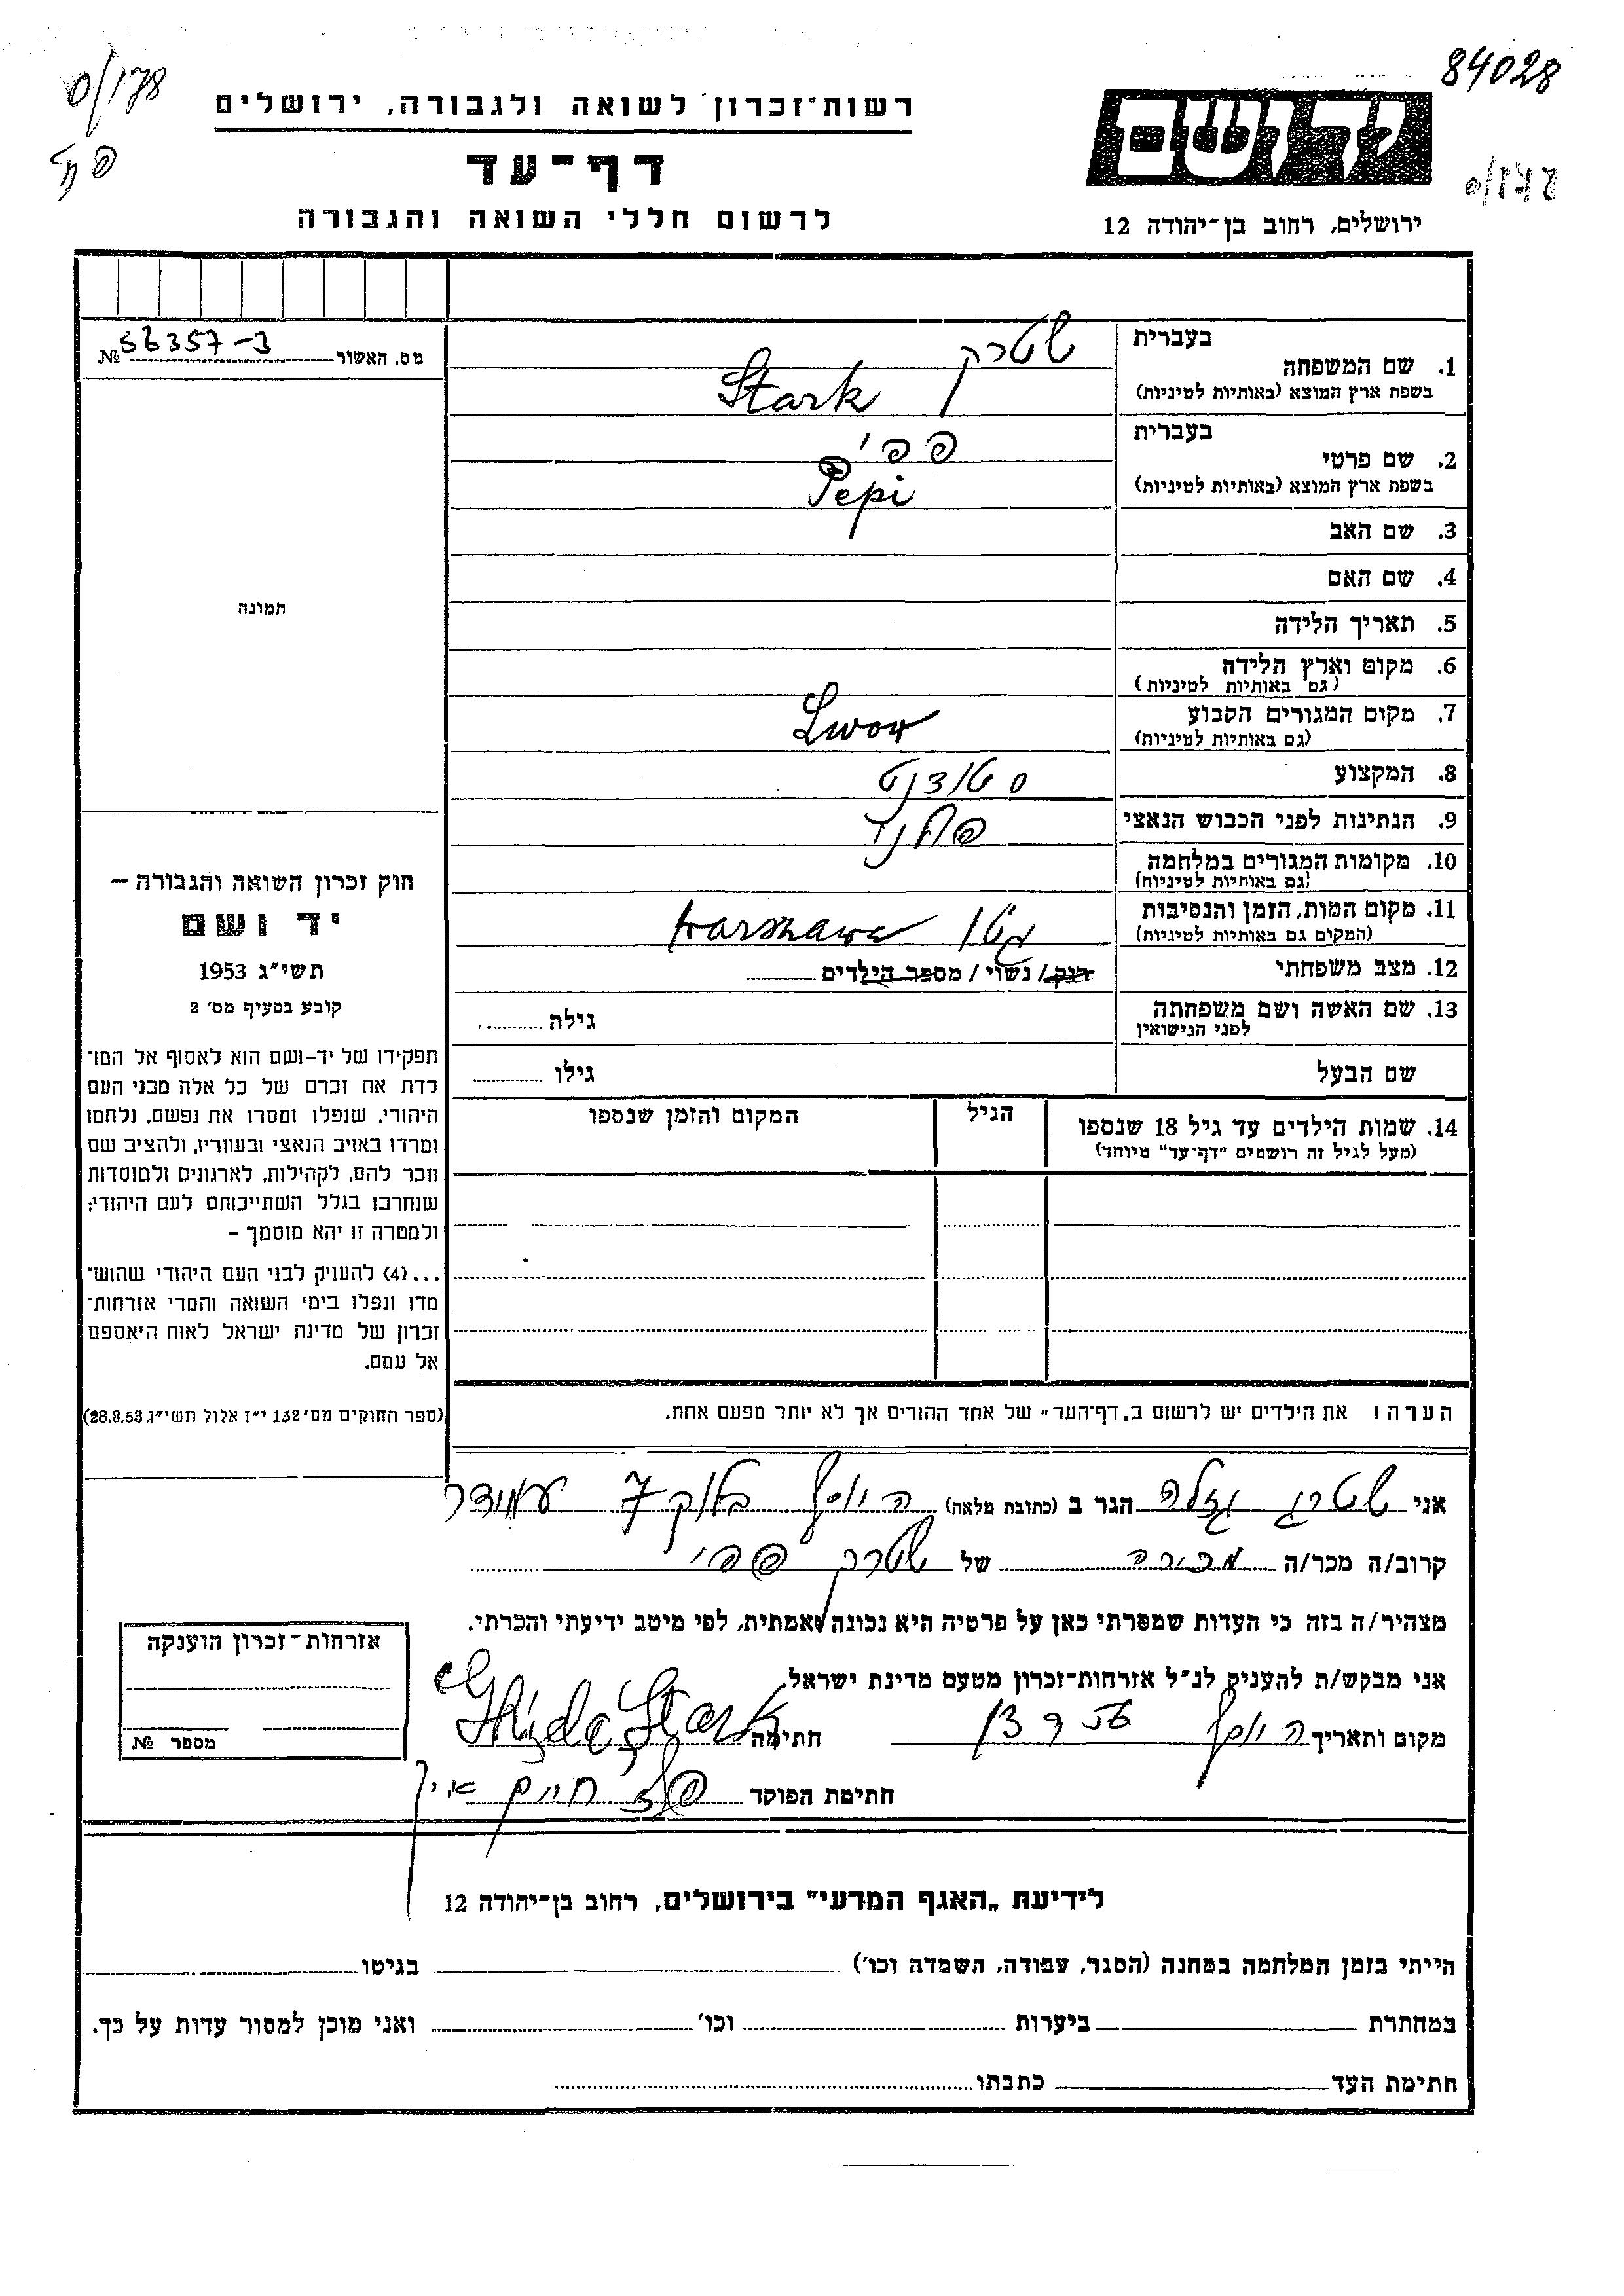 84028
0/178
0/178
רשות־זכרון לשואה ולגבורה, ירושלים
יד ושם
דף־עד
לרשום חללי השואה והגבורה
ירושלים, רחוב בן־יהודה 12
מס. האשור № 56357-3
תמונה
בעברית שטרק
1. שם המשפחה
בשפת ארץ המוצא (באותיות לטיניות) Stark
בעברית פפי
2. שם פרטי
בשפת ארץ המוצא (באותיות לטיניות) Pepi
3. שם האב
4. שם האם
5. תאריך הלידה
6. מקום וארץ הלידה
(גם באותיות לטיניות)
7. מקום המגורים הקבוע Lwow
(גם באותיות לטיניות)
8. המקצוע סטודנט
9. הנתינות לפני הכבוש הנאצי פולנד
10. מקומות המגורים במלחמה
(גם באותיות לטיניות)
11. מקום המות, הזמן והנסיבות גטו Warszawa
(המקום גם באותיות לטיניות)
12. מצב משפחתי רווק / נשוי / מספר הילדים
13. שם האשה ושם משפחתה גילה
לפני הנישואין
שם הבעל גילו
14. שמות הילדים עד גיל 18 שנספו הגיל המקום והזמן שנספו
(מעל לגיל זה רושמים "דף־עד" מיוחד)
הערה: את הילדים יש לרשום ב"דף־העד" של אחד ההורים אך לא יותר מפעם אחת.
חוק זכרון השואה והגבורה –
יד ושם
תשי"ג 1953
קובע בסעיף מס' 2
תפקידו של יד-ושם הוא לאסוף אל המו־
לדת את זכרם של כל אלה מבני העם
היהודי, שנפלו ומסרו את נפשם, נלחמו
ומרדו באויב הנאצי ובעוזריו, ולהציב שם
וזכר להם, לקהילות, לארגונים ולמוסדות
שנחרבו בגלל השתייכותם לעם היהודי;
ולמטרה זו יהא מוסמך –
...(4) להעניק לבני העם היהודי שהוש־
מדו ונפלו בימי השואה והמרי אזרחות־
זכרון של מדינת ישראל לאות היאספם
אל עמם.
(ספר החוקים מס' 132 י"ז אלול תשי"ג 28.8.53)
אני שטרק גזלה הגר ב (כתובת מלאה) היוסף בלוק 7
קרוב/ה מכר/ה מכירה של שטרק פפי
מצהיר/ה בזה כי העדות שמסרתי כאן על פרטיה היא נכונה ואמתית, לפי מיטב ידיעתי והכרתי.
אני מבקש/ת להעניק לנ"ל אזרחות־זכרון מטעם מדינת ישראל.
מקום ותאריך היוסף חתימה Stark
חתימת הפוקד חיים
אזרחות־זכרון הוענקה
מספר №
לידיעת „האגף המדעי" בירושלים, רחוב בן־יהודה 12
הייתי בזמן המלחמה במחנה (הסגר, עבודה, השמדה וכו') בגיטו
במחתרת ביערות וכו' ואני מוכן למסור עדות על כך.
חתימת העד כתבתו